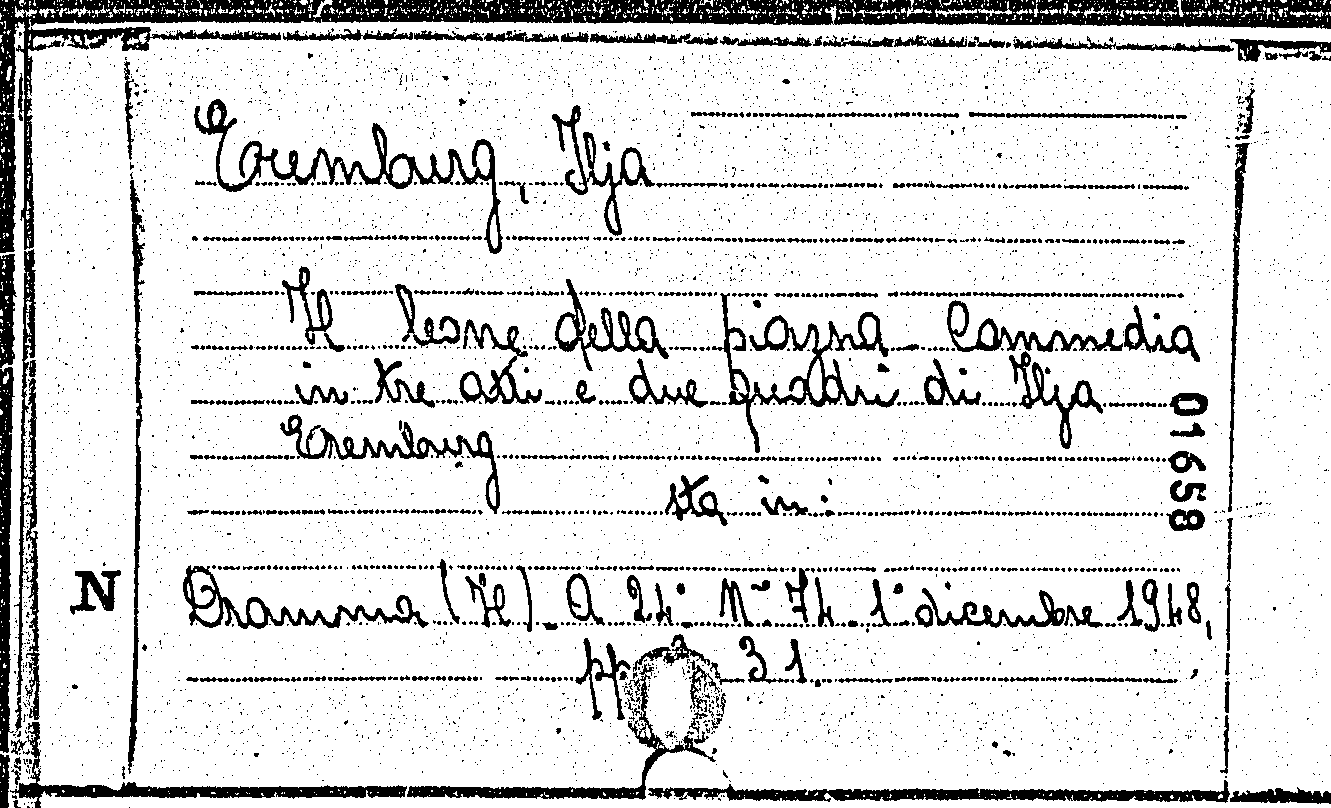 Eremburg, Ilja
Il leone della piazza. Commedia
in tre atti e due quadri di Ilja
Eremburg
sta in:
01658
N
Dramma (Il). A 24° N° 74. 1° dicembre 1948,
pp 31.